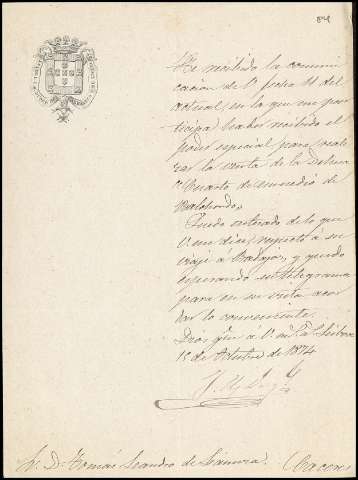 He recibido la comuni
cacion de V. fecha 11 del
actual, en la que me par
ticipa haber recibido el
poder especial para reali
zar la venta de la Dehesa
Cuarto de enmedio de
Valdehondo,
Quedo enterado de lo que
V. me dice respecto á su
viaje á Badajoz, y quedo
esperando su telegrama
para en su vista acor
dar lo conveniente.
Dios gue á V. m. a. Lisboa
15 de Octubre de 1874
Sr. Dn. Tomás Leandro de
(Caceres